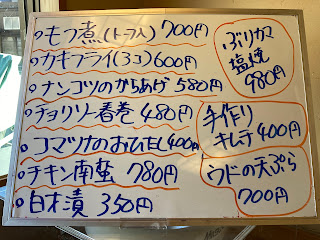 もつ煮(トーフ入) 700円
カキフライ(3コ)600円
ナンコツのからあげ 580円
チョリソー春巻 480円
コマツナのおひたし400円
チキン南蛮 780円
白才漬 350円
ぶりカマ
塩焼
980円
手作り
キムチ400円
ウドの天ぷら
700円